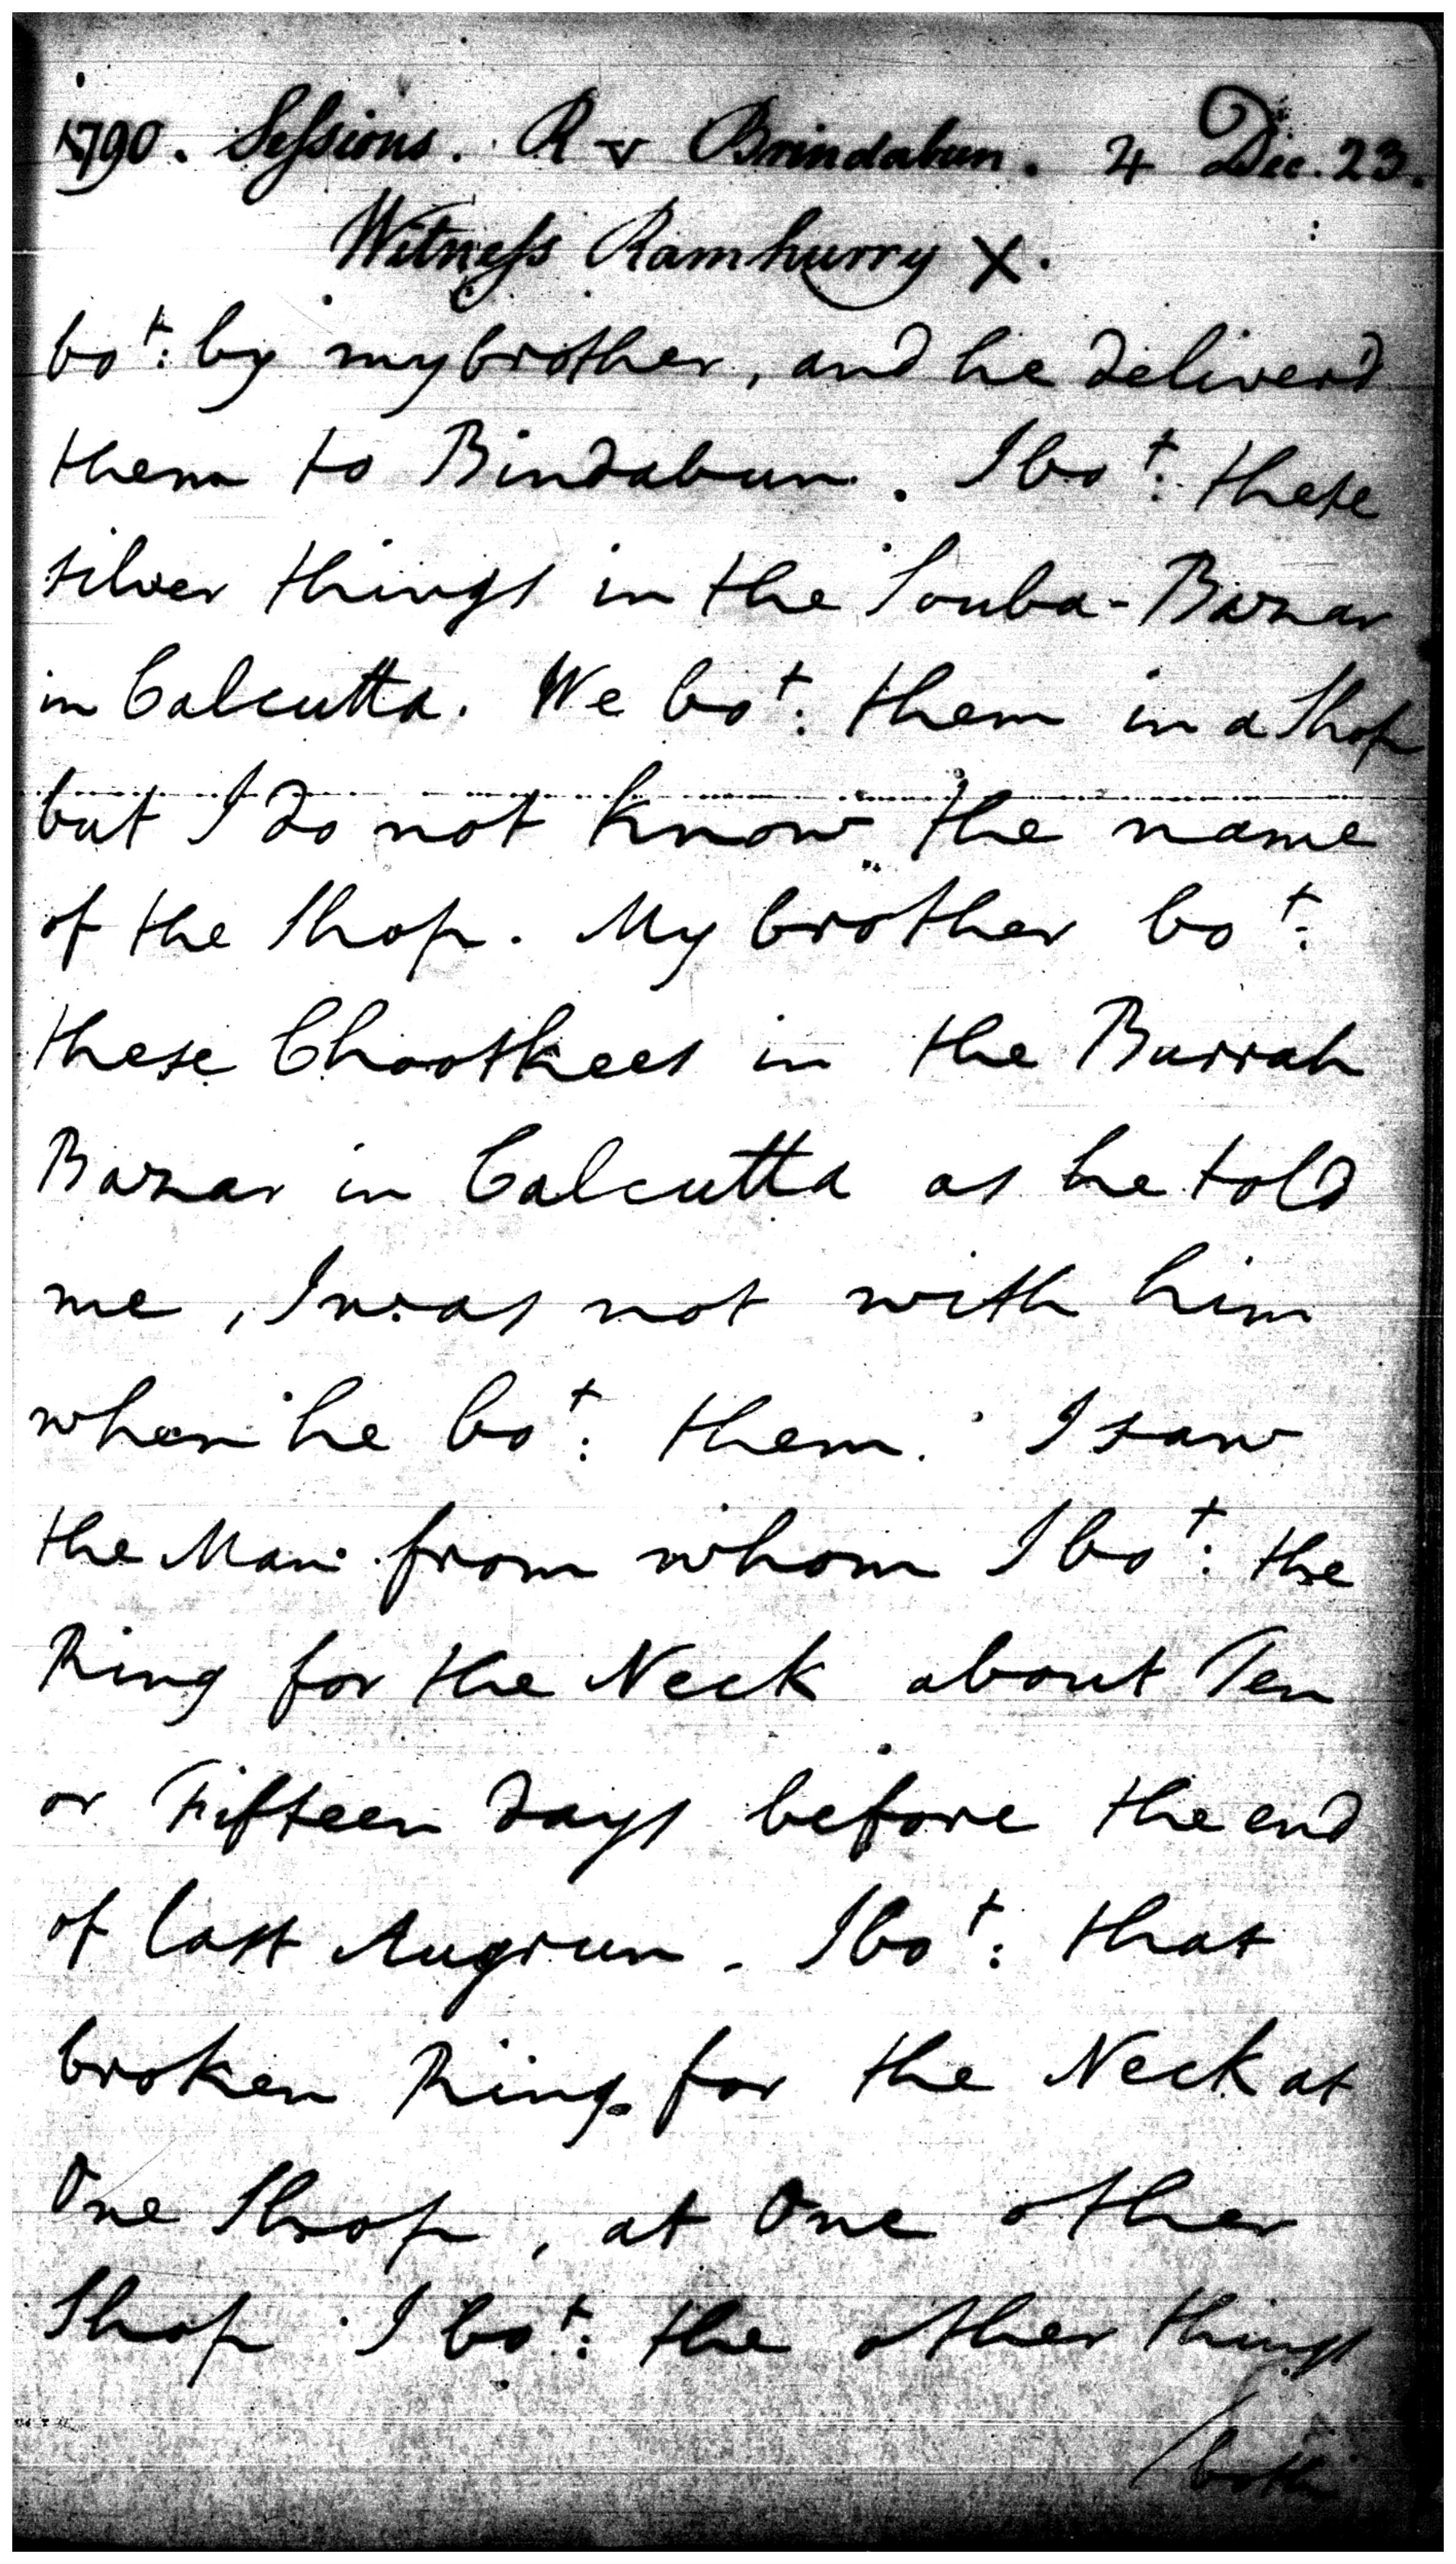 1790. Sessions. R v Brindabun. 4 Dec. 23.
Witness Ramhurry X.
bot: by my brother, and he deliverd
them to Bindabun. I bot: these
silver things in the Souba-Bazar
in Calcutta. We bot: them in a Shop
but I do not know the name
of the Shop. My brother bot:
these Chootkees in the Burrah
Bazar in Calcutta as he told
me, I was not with him
when he bot: them. I saw
the Man from whom I bot: the
Ring for the Neck about Ten
or Fifteen days before the end
of last Augrun. I bot: that
broken Ring for the Neck at
One Shop, at One other
Shop I bot: the other things
(both